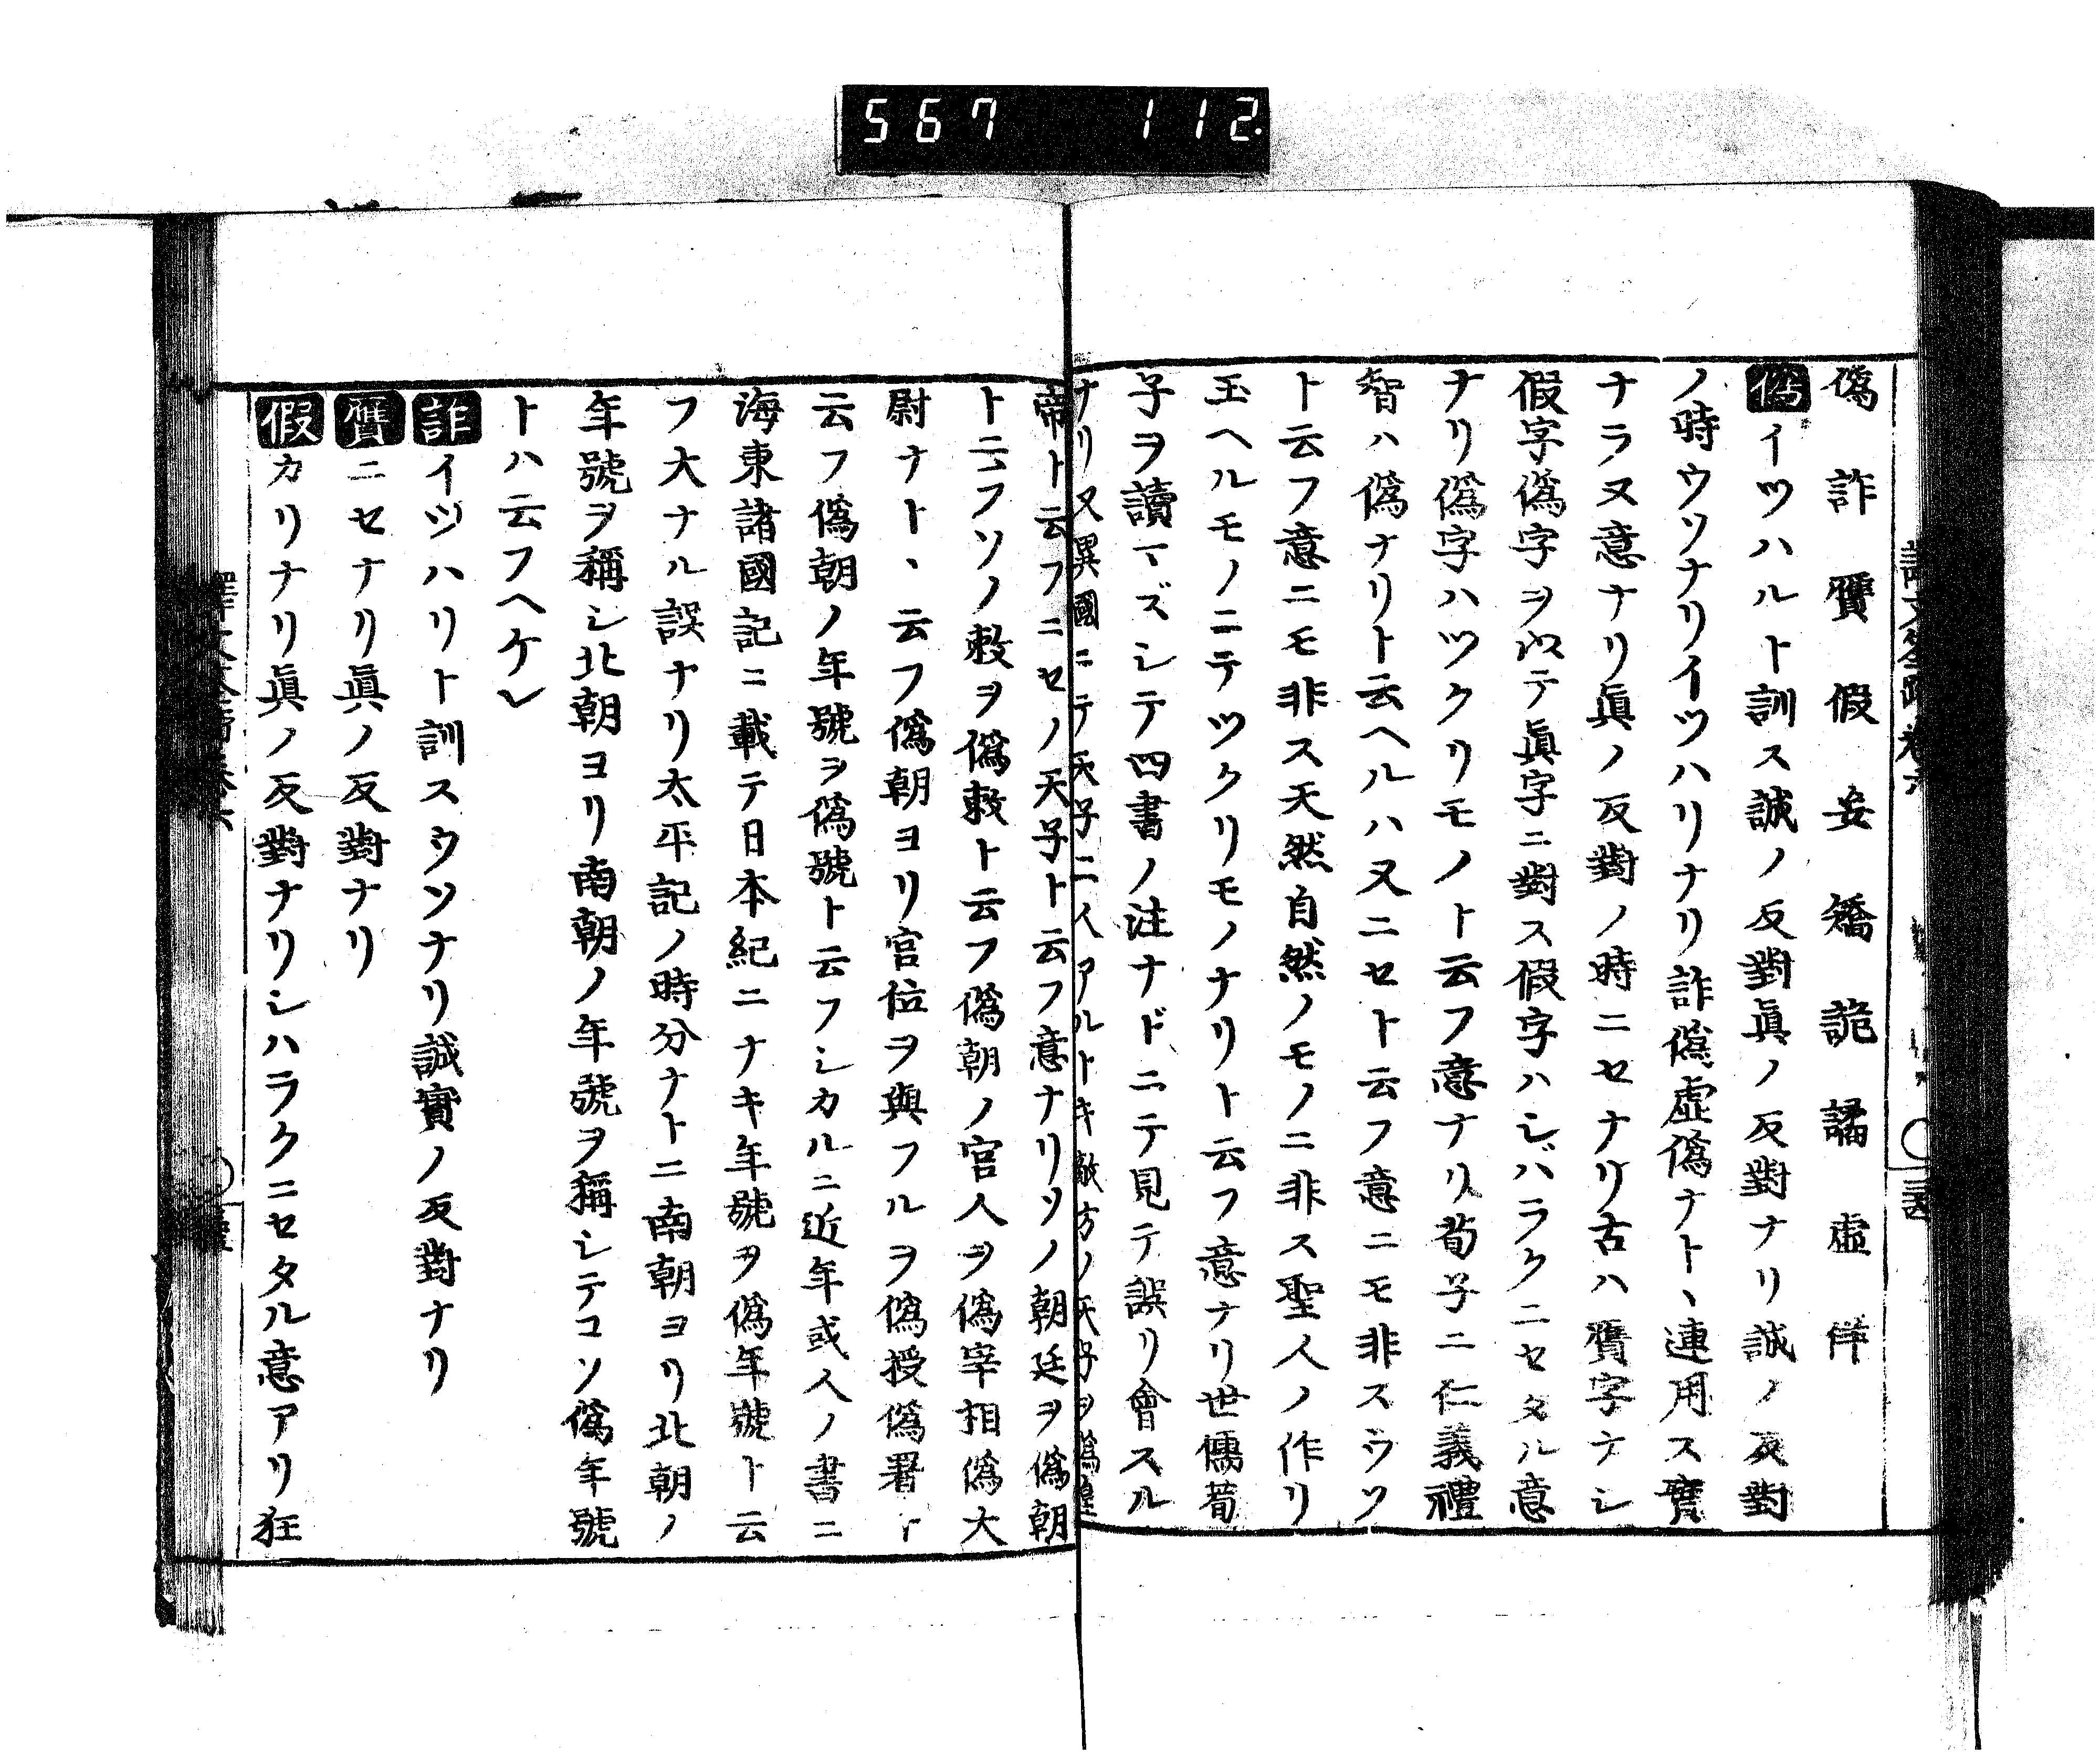 567 112
僞 詐 贋 假 妄 矯 詭 譎 虛 佯
僞イツハルト訓ス誠ノ反對眞ノ反對ナリ誠ノ反對
ノ時ウソナリイツハリナリ詐僞虛僞ナト丶連用ス實
ナラヌ意ナリ眞ノ反對ノ時ニセナリ古ハ贋字ナシ
假字僞字ヲ以テ眞字ニ對ス假字ハシバラクニセタル意
ナリ僞字ハツクリモノト云フ意ナリ荀子ニ仁義禮
智ハ僞ナリト云ヘルハ又ニセト云フ意ニモ非スウソ
ト云フ意ニモ非ス天然自然ノモノニ非ス聖人ノ作リ
玉ヘルモノニテツクリモノナリト云フ意ナリ世儒荀
子ヲ讀マズシテ四書ノ注ナドニテ見テ誤リ會スル
ナリ又異國ニテ天子二人アルトキ敵方ノ天子ヲ僞皇
帝ト云フニセノ天子ト云フ意ナリソノ朝廷ヲ僞朝
ト云フソノ敕ヲ僞敕ト云フ僞朝ノ官人ヲ僞宰相僞大
尉ナト丶云フ僞朝ヨリ官位ヲ與フルヲ僞授僞署ト
云フ僞朝ノ年號ヲ僞號ト云フシカルニ近年或人ノ書ニ
海東諸國記ニ載テ日本紀ニナキ年號ヲ僞年號ト云
フ大ナル誤ナリ太平記ノ時分ナトニ南朝ヨリ北朝ノ
年號ヲ稱シ北朝ヨリ南朝ノ年號ヲ稱シテコソ僞年號
トハ云フヘケレ
詐イツハリト訓スウソナリ誠實ノ反對ナリ
贋ニセナリ眞ノ反對ナリ
假カリナリ眞ノ反對ナリシハラクニセタル意アリ狂